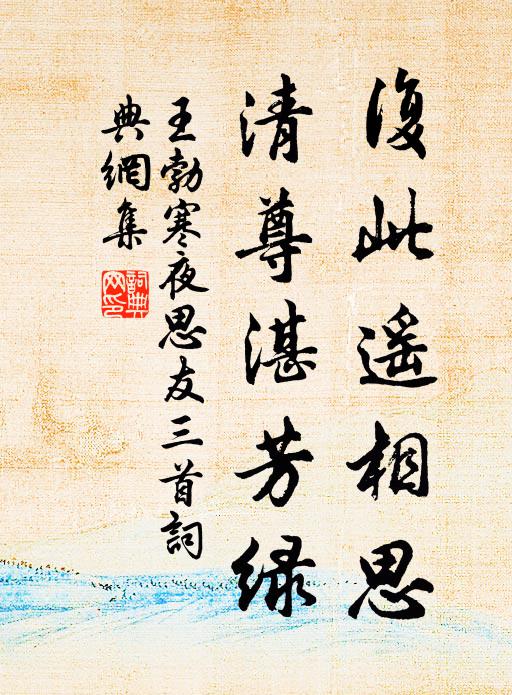 復此遥相思
清尊湛芳绿
王勃寒夜思友三首詞
典網集
詞典
网印